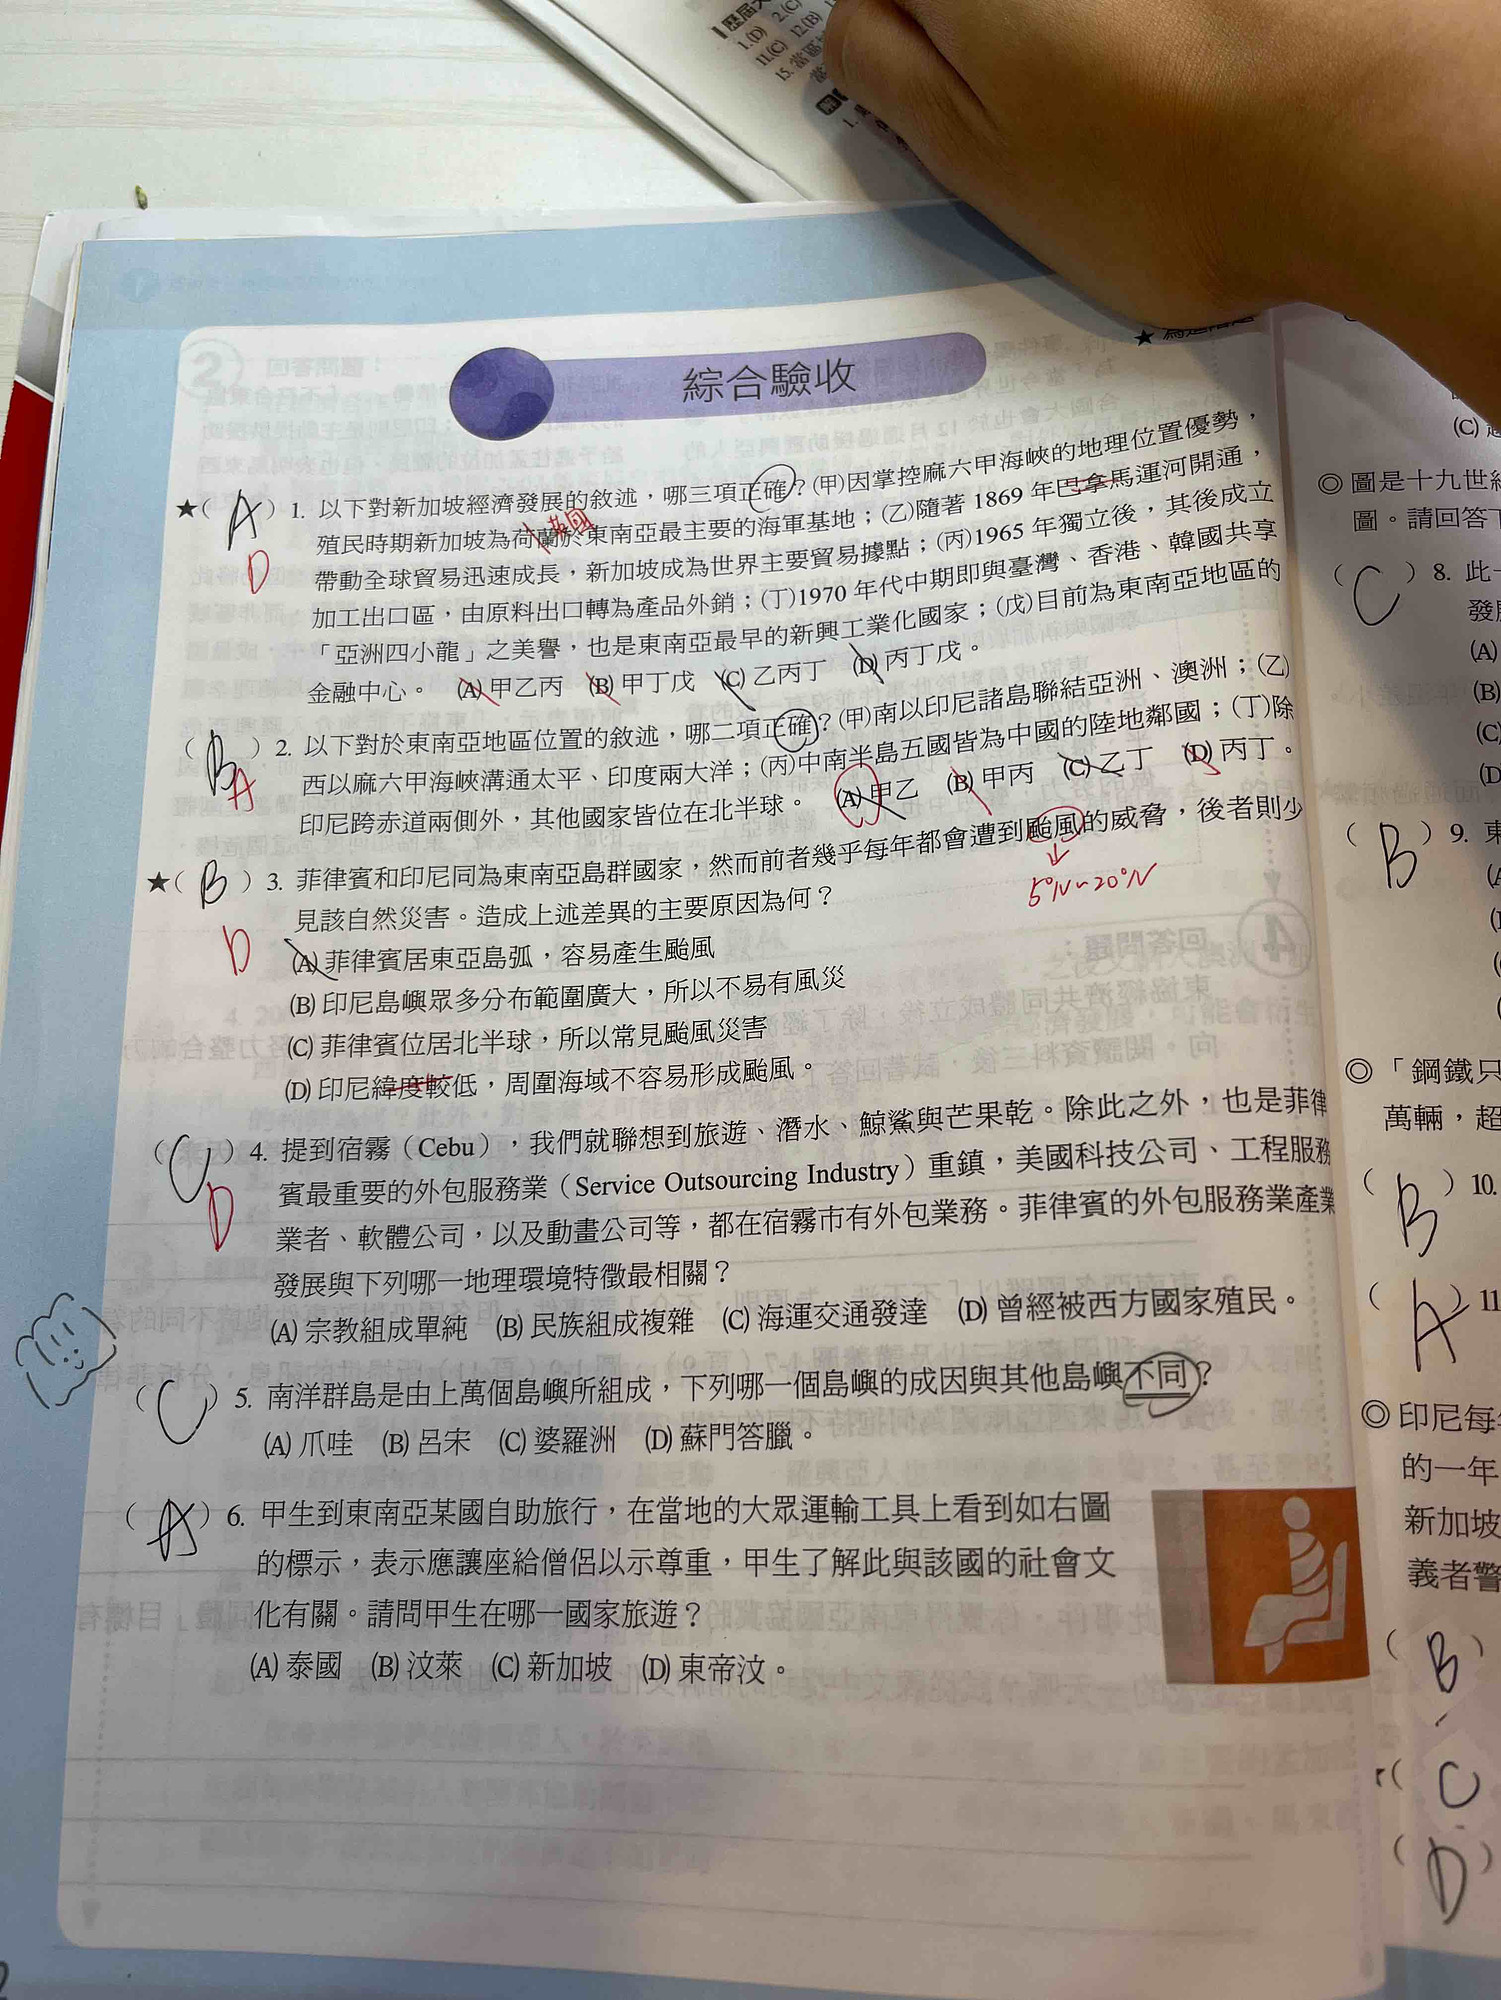 1.(D) 2.(C)
11.(C) 12.(B)
15. 當
綜合驗收
★( A ) 1. 以下對新加坡經濟發展的敘述，哪三項正確？(甲)因掌控麻六甲海峽的地理位置優勢，
英國
殖民時期新加坡為荷蘭於東南亞最主要的海軍基地；(乙)隨著 1869 年巴拿馬運河開通，
D
帶動全球貿易迅速成長，新加坡成為世界主要貿易據點；(丙)1965 年獨立後，其後成立
加工出口區，由原料出口轉為產品外銷；(丁)1970 年代中期即與臺灣、香港、韓國共享
「亞洲四小龍」之美譽，也是東南亞最早的新興工業化國家；(戊)目前為東南亞地區的
金融中心。 (A) 甲乙丙 (B) 甲丁戊 (C) 乙丙丁 (D) 丙丁戊。
( B ) 2. 以下對於東南亞地區位置的敘述，哪二項正確？(甲)南以印尼諸島聯結亞洲、澳洲；(乙)
A
西以麻六甲海峽溝通太平、印度兩大洋；(丙)中南半島五國皆為中國的陸地鄰國；(丁)除
印尼跨赤道兩側外，其他國家皆位在北半球。 (A) 甲乙 (B) 甲丙 (C) 乙丁 (D) 丙丁。
★( B ) 3. 菲律賓和印尼同為東南亞島群國家，然而前者幾乎每年都會遭到颱風的威脅，後者則少
5°N~20°N
見該自然災害。造成上述差異的主要原因為何？
D
(A) 菲律賓居東亞島弧，容易產生颱風
(B) 印尼島嶼眾多分布範圍廣大，所以不易有風災
(C) 菲律賓位居北半球，所以常見颱風災害
(D) 印尼緯度較低，周圍海域不容易形成颱風。
( C ) 4. 提到宿霧（Cebu），我們就聯想到旅遊、潛水、鯨鯊與芒果乾。除此之外，也是菲律
D
賓最重要的外包服務業（Service Outsourcing Industry）重鎮，美國科技公司、工程服務
業者、軟體公司，以及動畫公司等，都在宿霧市有外包業務。菲律賓的外包服務業產業
發展與下列哪一地理環境特徵最相關？
(A) 宗教組成單純 (B) 民族組成複雜 (C) 海運交通發達 (D) 曾經被西方國家殖民。
( C ) 5. 南洋群島是由上萬個島嶼所組成，下列哪一個島嶼的成因與其他島嶼不同？
(A) 爪哇 (B) 呂宋 (C) 婆羅洲 (D) 蘇門答臘。
( A ) 6. 甲生到東南亞某國自助旅行，在當地的大眾運輸工具上看到如右圖
的標示，表示應讓座給僧侶以示尊重，甲生了解此與該國的社會文
化有關。請問甲生在哪一國家旅遊？
(A) 泰國 (B) 汶萊 (C) 新加坡 (D) 東帝汶。
(C)
◎ 圖是十九世紀
圖。請回答下
( C ) 8. 此
發展
(A)
(B)
(C)
(D)
( B ) 9. 東
◎「鋼鐵只
萬輛，超
( B ) 10.
( A ) 11
◎ 印尼每年
的一年
新加坡
義者警
( B )
( C
( D )